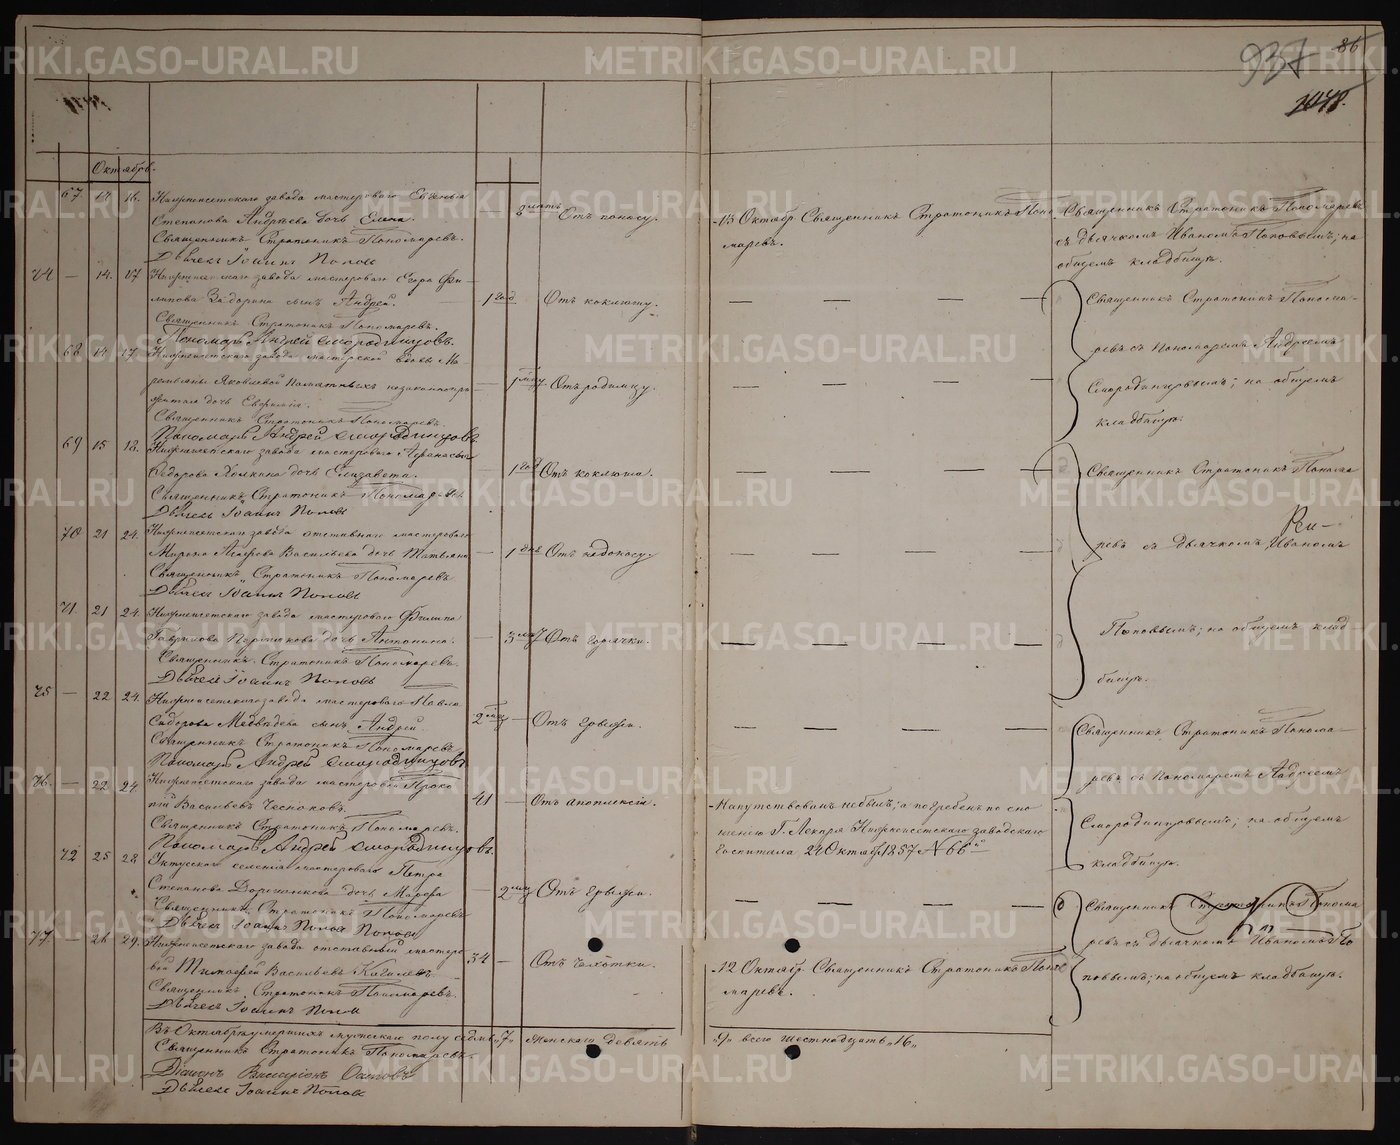 86
937
Октябрь.
67. 14 16. Нижнеисетскаго завода мастероваго Евгенія
Степанова Андреева дочь Елена.
Священникъ Стратоникъ Пономаревъ.
Дьячекъ Іоаннъ Поповъ
Отъ поносу.
13 Октябр. Священникъ Стратоникъ Поно
маревъ.
Священникъ Стратоникъ Пономаревъ
съ дьячкомъ Иваномъ Поповымъ; на
общемъ кладбищѣ.
74 — 14. 17 Нижнеисетскаго завода мастероваго Егора Фи-
липова Задорина сынъ Андрей.
Священникъ Стратоникъ Пономаревъ.
Пономарь Андрей Смородинцовъ.
1 год. Отъ коклюшу.
Священникъ Стратоникъ Понома-
ревъ съ Пономаремъ Андреемъ
Смородинцовымъ; на общемъ
кладбищѣ.
68 14 17. Нижнеисетскаго завода мастерской вдовы Ма
ремьяны Яковлевой незаконнопри
житая дочь Евфимія.
Священникъ Стратоникъ Пономаревъ.
Пономарь Андрей Смородинцовъ.
Отъ родимцу.
69 15 18. Нижнеисетскаго завода мастероваго Афанасья
Федорова дочь Елизавета.
Священникъ Стратоникъ Пономаревъ
Дьячекъ Іоаннъ Поповъ
1 год. Отъ коклюша.
Священникъ Стратоникъ Понома
ревъ съ дьячкомъ Иваномъ
Поповымъ; на общемъ клад
бищѣ.
70 21 24. Нижнеисетскаго завода отставнаго мастероваго
Мирона Васильева дочь Татьяна
Священникъ Стратоникъ Пономаревъ
Дьячекъ Іоаннъ Поповъ
71. 21 24. Нижнеисетскаго завода мастероваго Филипа
Гаврилова дочь Антонина.
Священникъ Стратоникъ Пономаревъ.
Дьячекъ Іоаннъ Поповъ
Отъ горячки.
75 — 22 24. Нижнеисетскаго завода мастероваго Павла
Сидорова Медведева сынъ Андрей.
Священникъ Стратоникъ Пономаревъ
Пономарь Андрей Смородинцовъ
Священникъ Стратоникъ Понома-
ревъ съ Пономаремъ Андреемъ
Смородинцовымъ; на общемъ
кладбищѣ.
76. — 22 24 Нижнеисетскаго завода мастеровой Проко
пій Васильевъ Чесноковъ.
Священникъ Стратоникъ Пономаревъ.
Пономарь Андрей Смородинцовъ.
41 — Отъ апоплексіи.
Напутствованъ небылъ; а погребенъ по сно
шенію Г. Лекаря Нижнеисетскаго заводскаго
госпиталя 24 Октября 1857 № 66
72 25 28 селенія мастероваго Петра
Степанова дочь Марфа
Священникъ Стратоникъ Пономаревъ
Дьячекъ Іоаннъ Поповъ
Священникъ Стратоникъ Понома
ревъ съ дьячкомъ Иваномъ По
повымъ; на общемъ кладбищѣ.
77. — 26 29. Нижнеисетскаго завода отставный мастеро
вой Тимофей Васильевъ
Священникъ Стратоникъ Пономаревъ.
Дьячекъ Іоаннъ Поповъ
34 — Отъ чахотки.
12 Октябр. Священникъ Стратоникъ Поно
маревъ.
Въ Октябрѣ умершихъ мужескаго полу седмь „7„ женскаго девять
„9„ всего шестнадцать „16„
Священникъ Стратоникъ Пономаревъ.
Діаконъ Виссаріонъ
Дьячекъ Іоаннъ Поповъ
METRIKI.GASO-URAL.RU